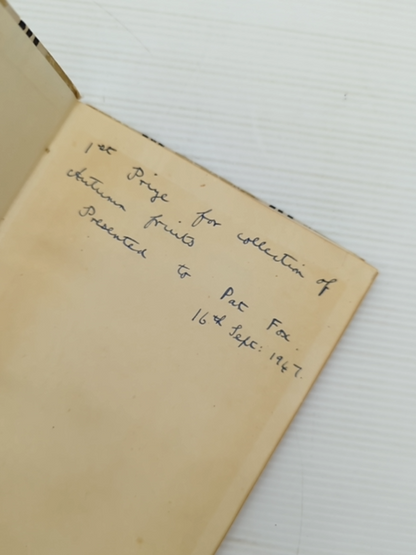 1st Prize for collection of
Autumn fruits
Presented to Pat Fox.
16th Sept: 1947.